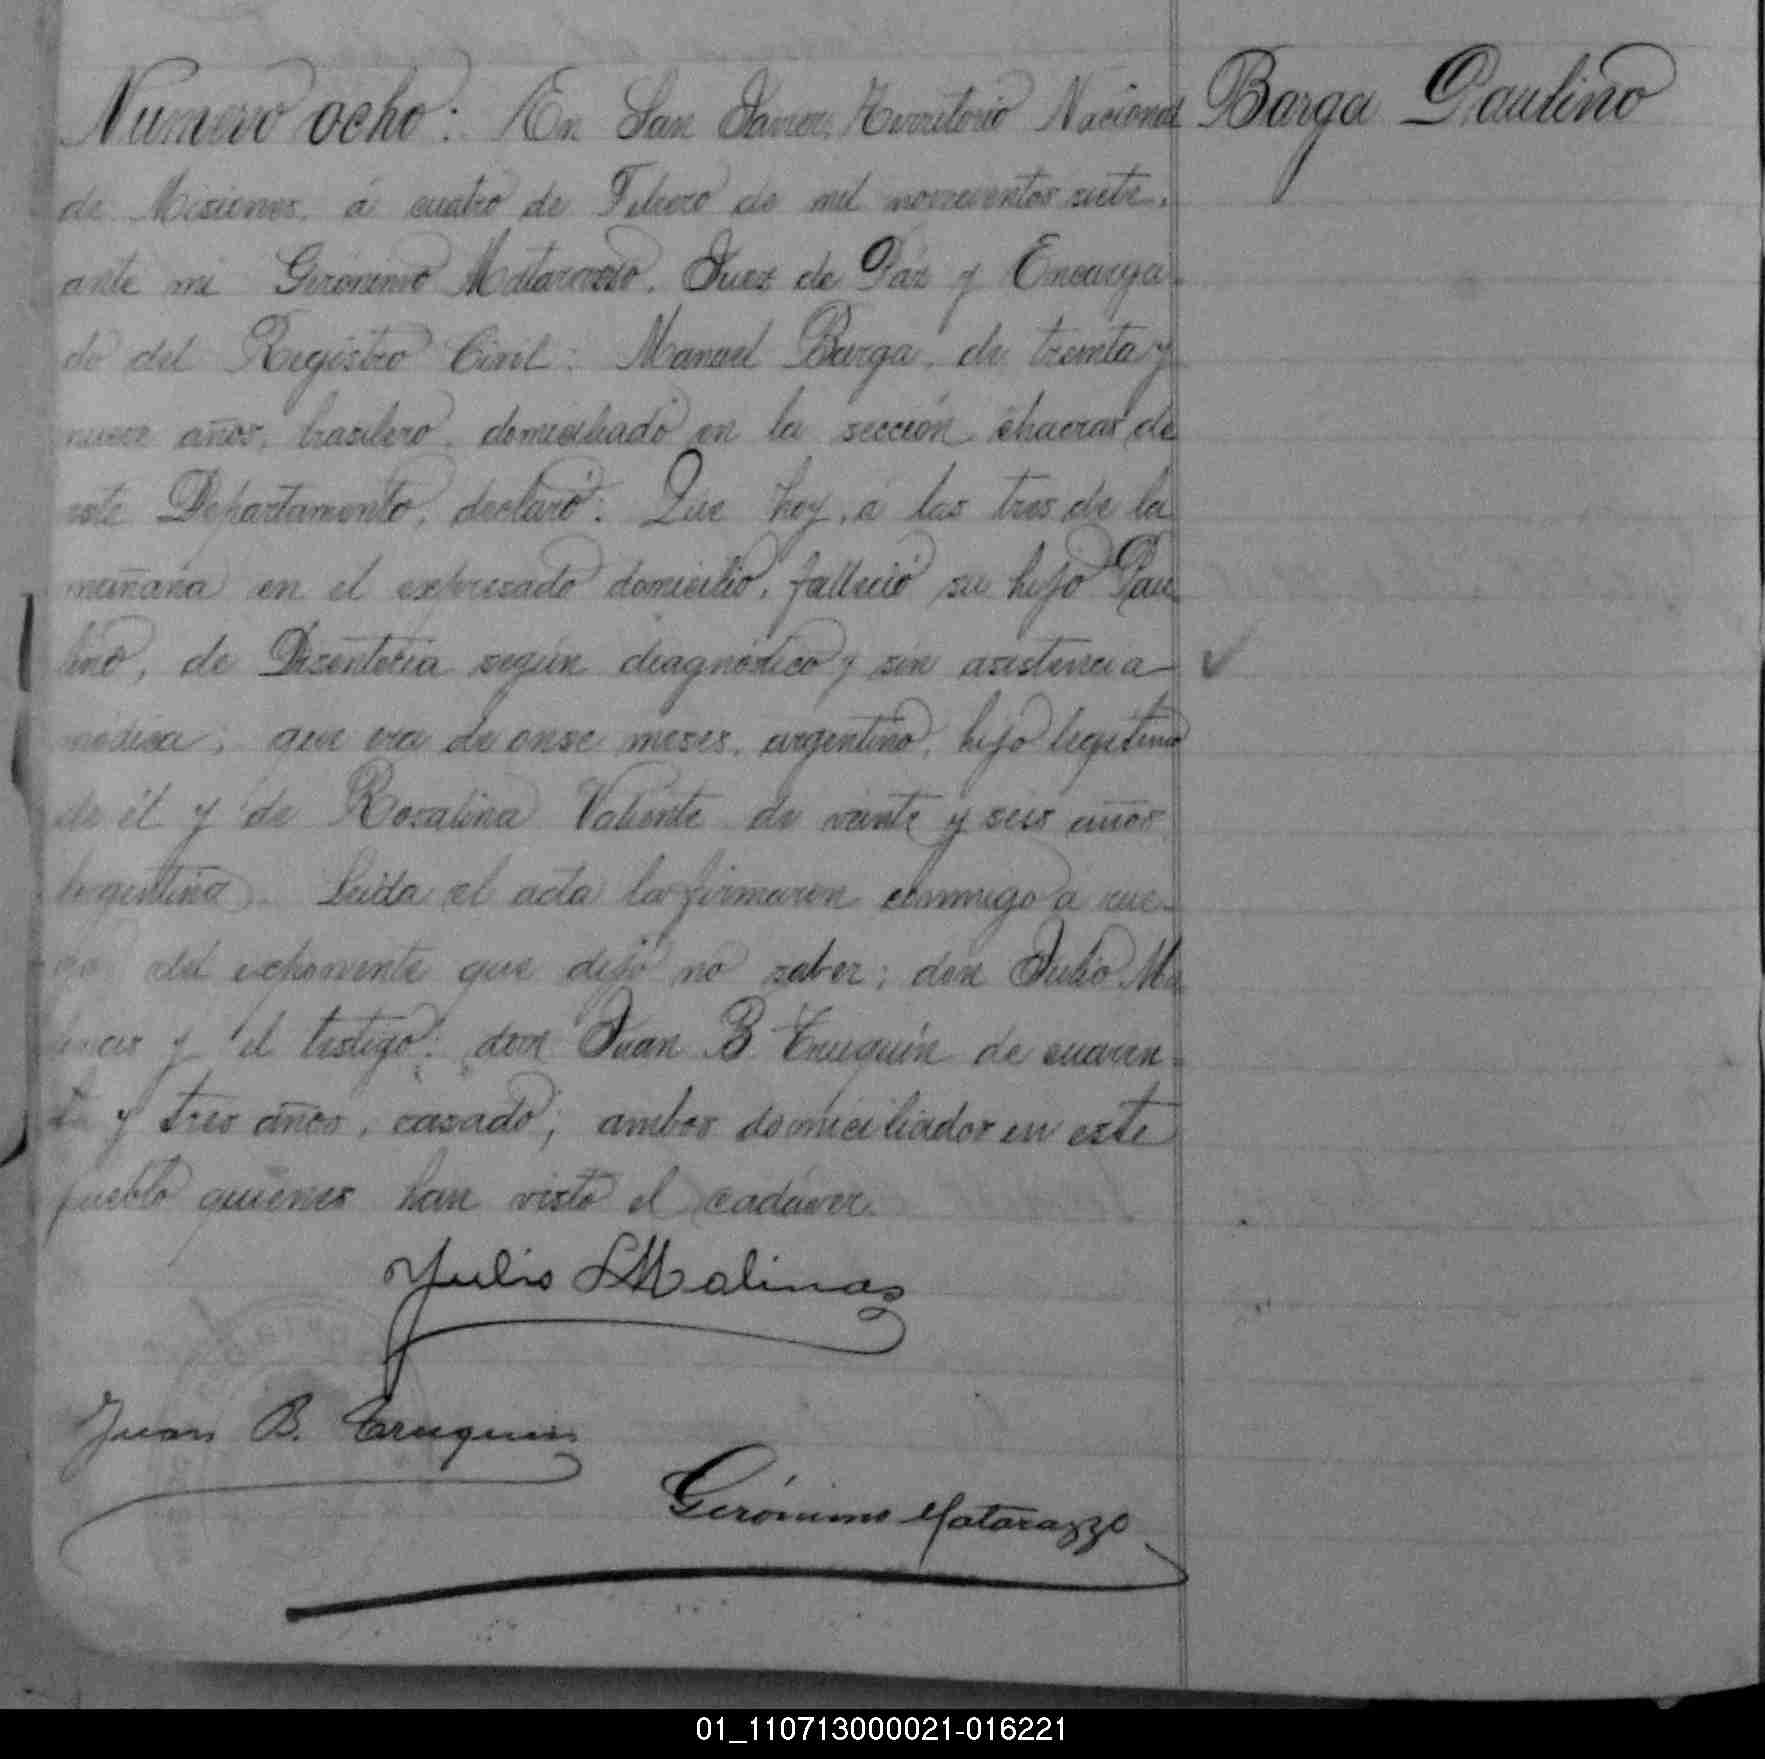 Numero ocho: En San Javier, Territorio Nacional
Barga Paulino
de Misiones, á cuatro de Febrero de mil novecientos siete,
ante mi Gerónimo Matarazzo, Juez de Páz y Encarga-
do del Registro Civil: Manuel Barga, de treinta y
nueve años, brasilero, domiciliado en la sección chacras de
este Departamento, declaró: Que hoy, á las tres de la
mañana en el expresado domicilio, falleció su hijo Pau
lino, de Disenteria según diagnóstico y sin asistencia
médica; que era de onse meses, argentino, hijo legitimo
de él y de Rosalina Valiente de veinte y seis años
Argentina. Leida el acta la firmaron conmigo á rue-
go del exponente que dijó no saber; don Julio Mo
linas y el testigo: don Juan B. Truquin de cuaren-
ta y tres años, casado; ambos domiciliados en este
pueblo quienes han visto el cadáver.
Julio Molinas
Juan B. Truquin
Gerónimo Matarazzo
01_110713000021-016221